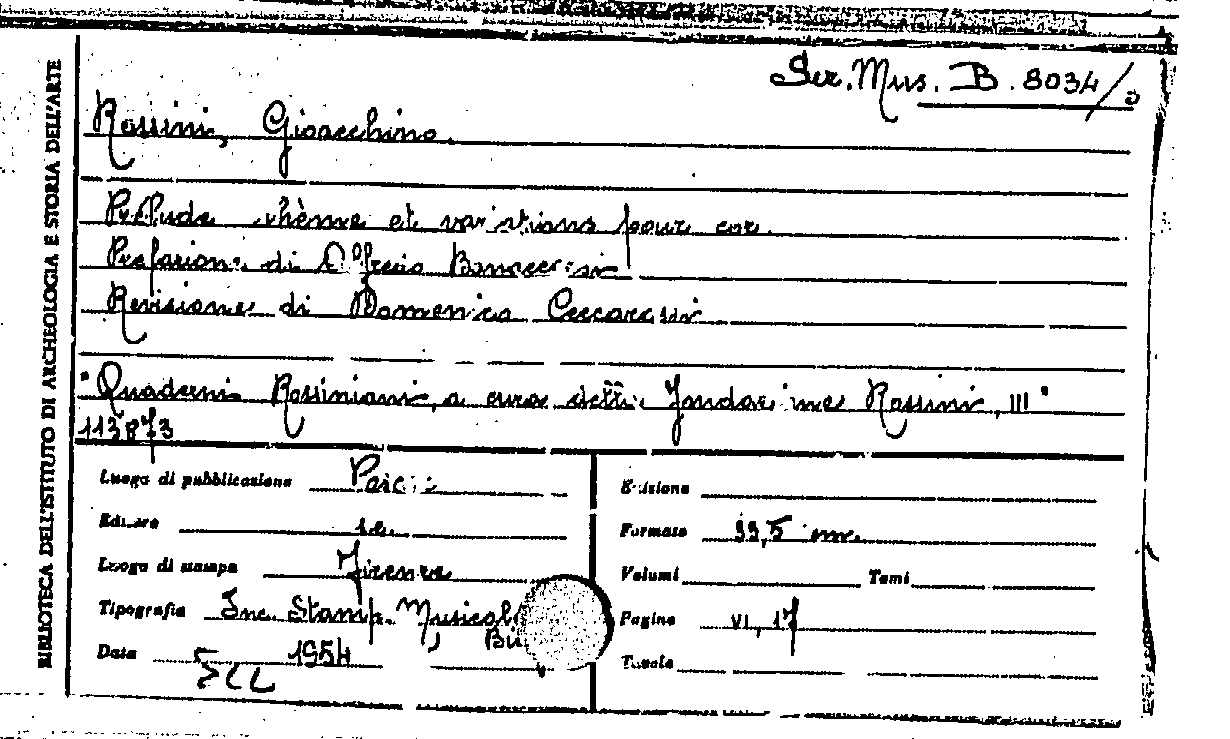 Ser. Mus. B. 8034/
Rossini, Gioacchino.
Prélude thème et variations pour cor.
Prefazione di Alfredo Bonaccorsi
Revisione di Domenico Ceccarossi
"Quaderni Rossiniani, a cura della Fondazione Rossini, III"
113873
BIBLIOTECA DELL'ISTITUTO DI ARCHEOLOGIA E STORIA DELL'ARTE
Luogo di pubblicazione
Editore
Luogo di stampa Firenze
Tipografia Inc. Stamp. Musical
Data 1954
Edizione
Formato 33,5 cm.
Volumi Tomi
Pagine VI, 17
Tavole